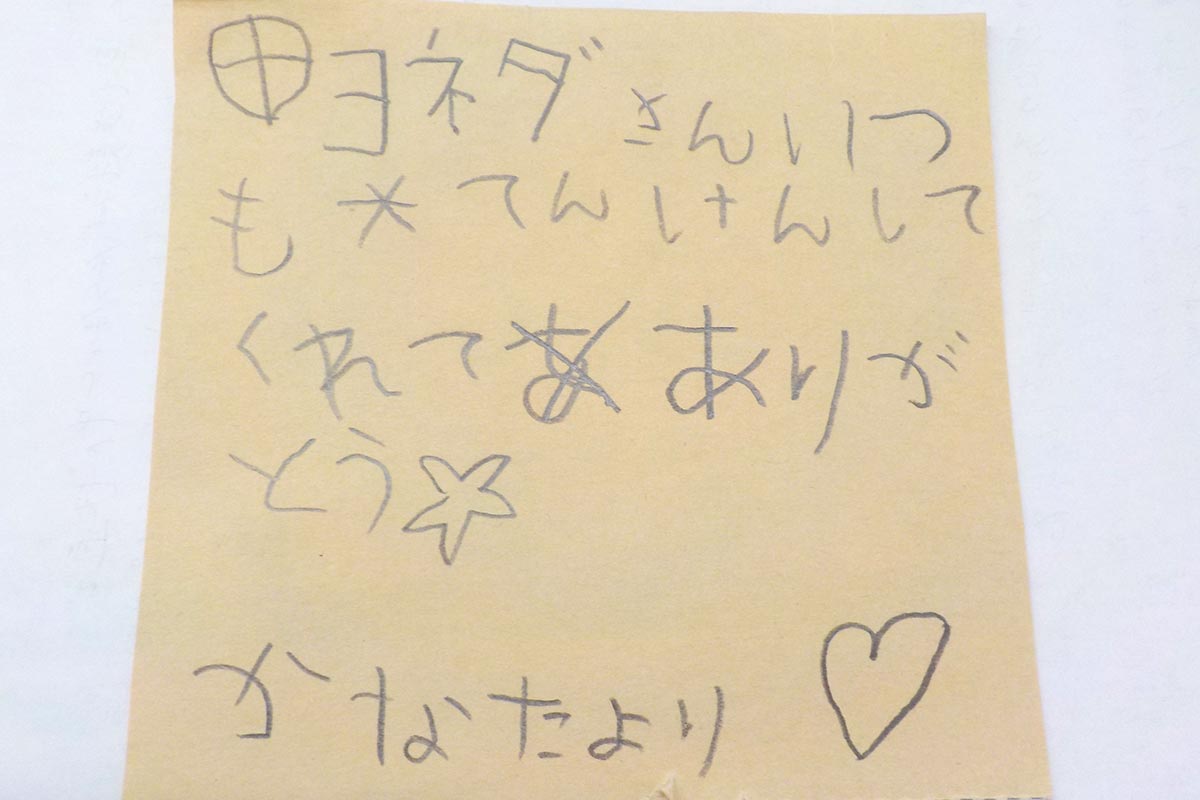 ヨネダさんいつ
もてんけんして
くれてありが
とう
かなたより